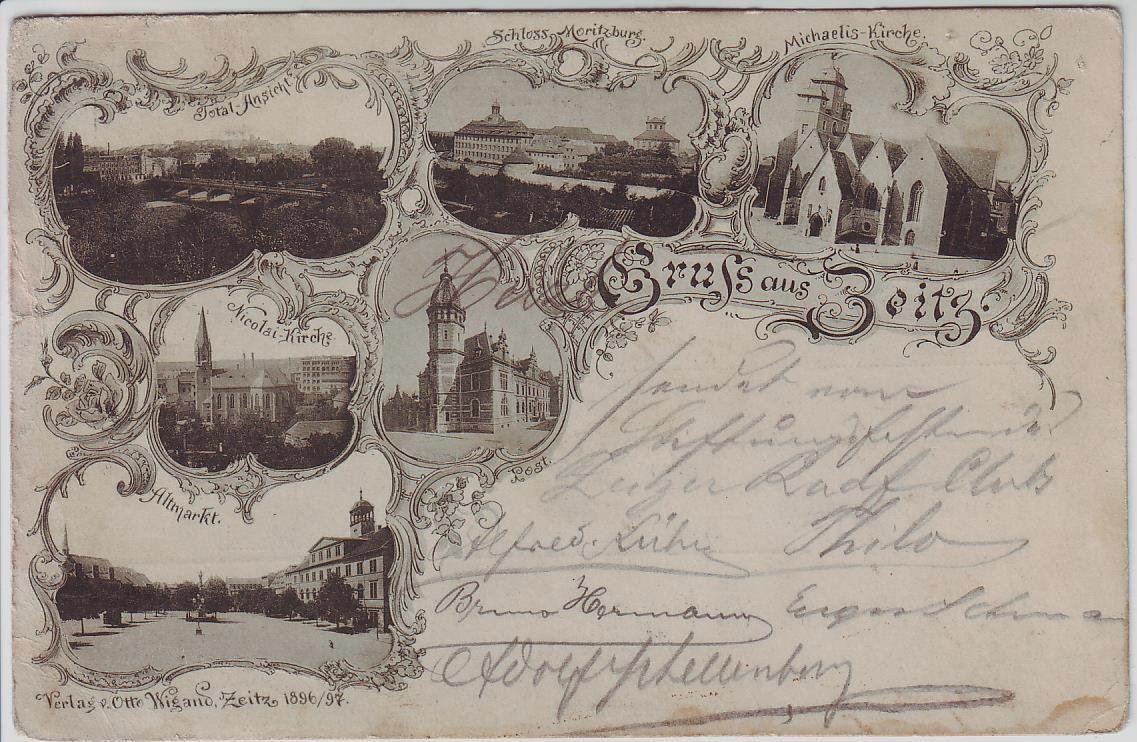 Schloss Moritzburg.
Michaelis-Kirche.
Total-Ansicht
Gruss aus Zeitz.
Nicolai-Kirche
Post.
Altmarkt.
Heil
sendet vom
Stiftungsfest des
Zeitzer Radf. Clubs
Alfred Kühn Thilo
Bruno Hermann Eugen
Adolf Schellenberg
Verlag v. Otto Wigand, Zeitz 1896/97.